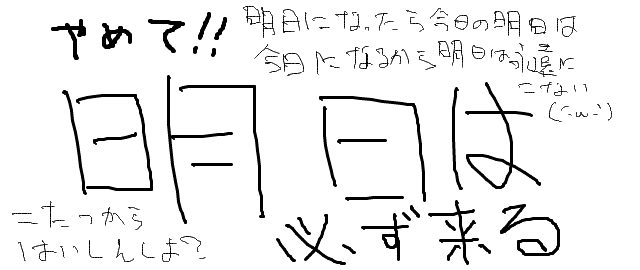 やめて!!
明日になったら今日の明日は
今日になるから明日は永遠に
こない
(´・ω・`)
明日は
必ず来る
こたつから
はいしんしよ?